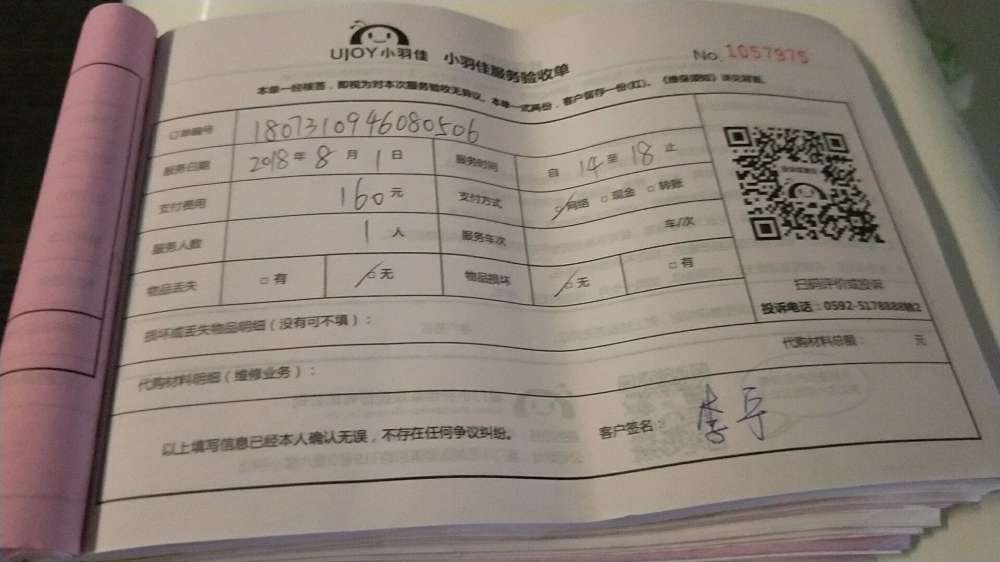 UJOY小羽佳 小羽佳服务验收单 No. 1057975
本单一经核签，即视为对本次服务验收无异议。本单一式两份，客户留存一份(红)。《维保须知》详见背面。
订单编号 1807310946080506
服务日期 2018年8月1日 服务时间 自14至18止
支付费用 160元 支付方式 □网络 □现金 □转账
服务人数 1人 服务车次 车/次
物品丢失 □有 □无 物品损坏 □无 □有
扫码评价或投诉
投诉电话：0592-5178888转2
损坏或丢失物品明细（没有可不填）：
代购材料明细（维修业务）： 代购材料总额： 元
以上填写信息已经本人确认无误，不存在任何争议纠纷。 客户签名：李宁